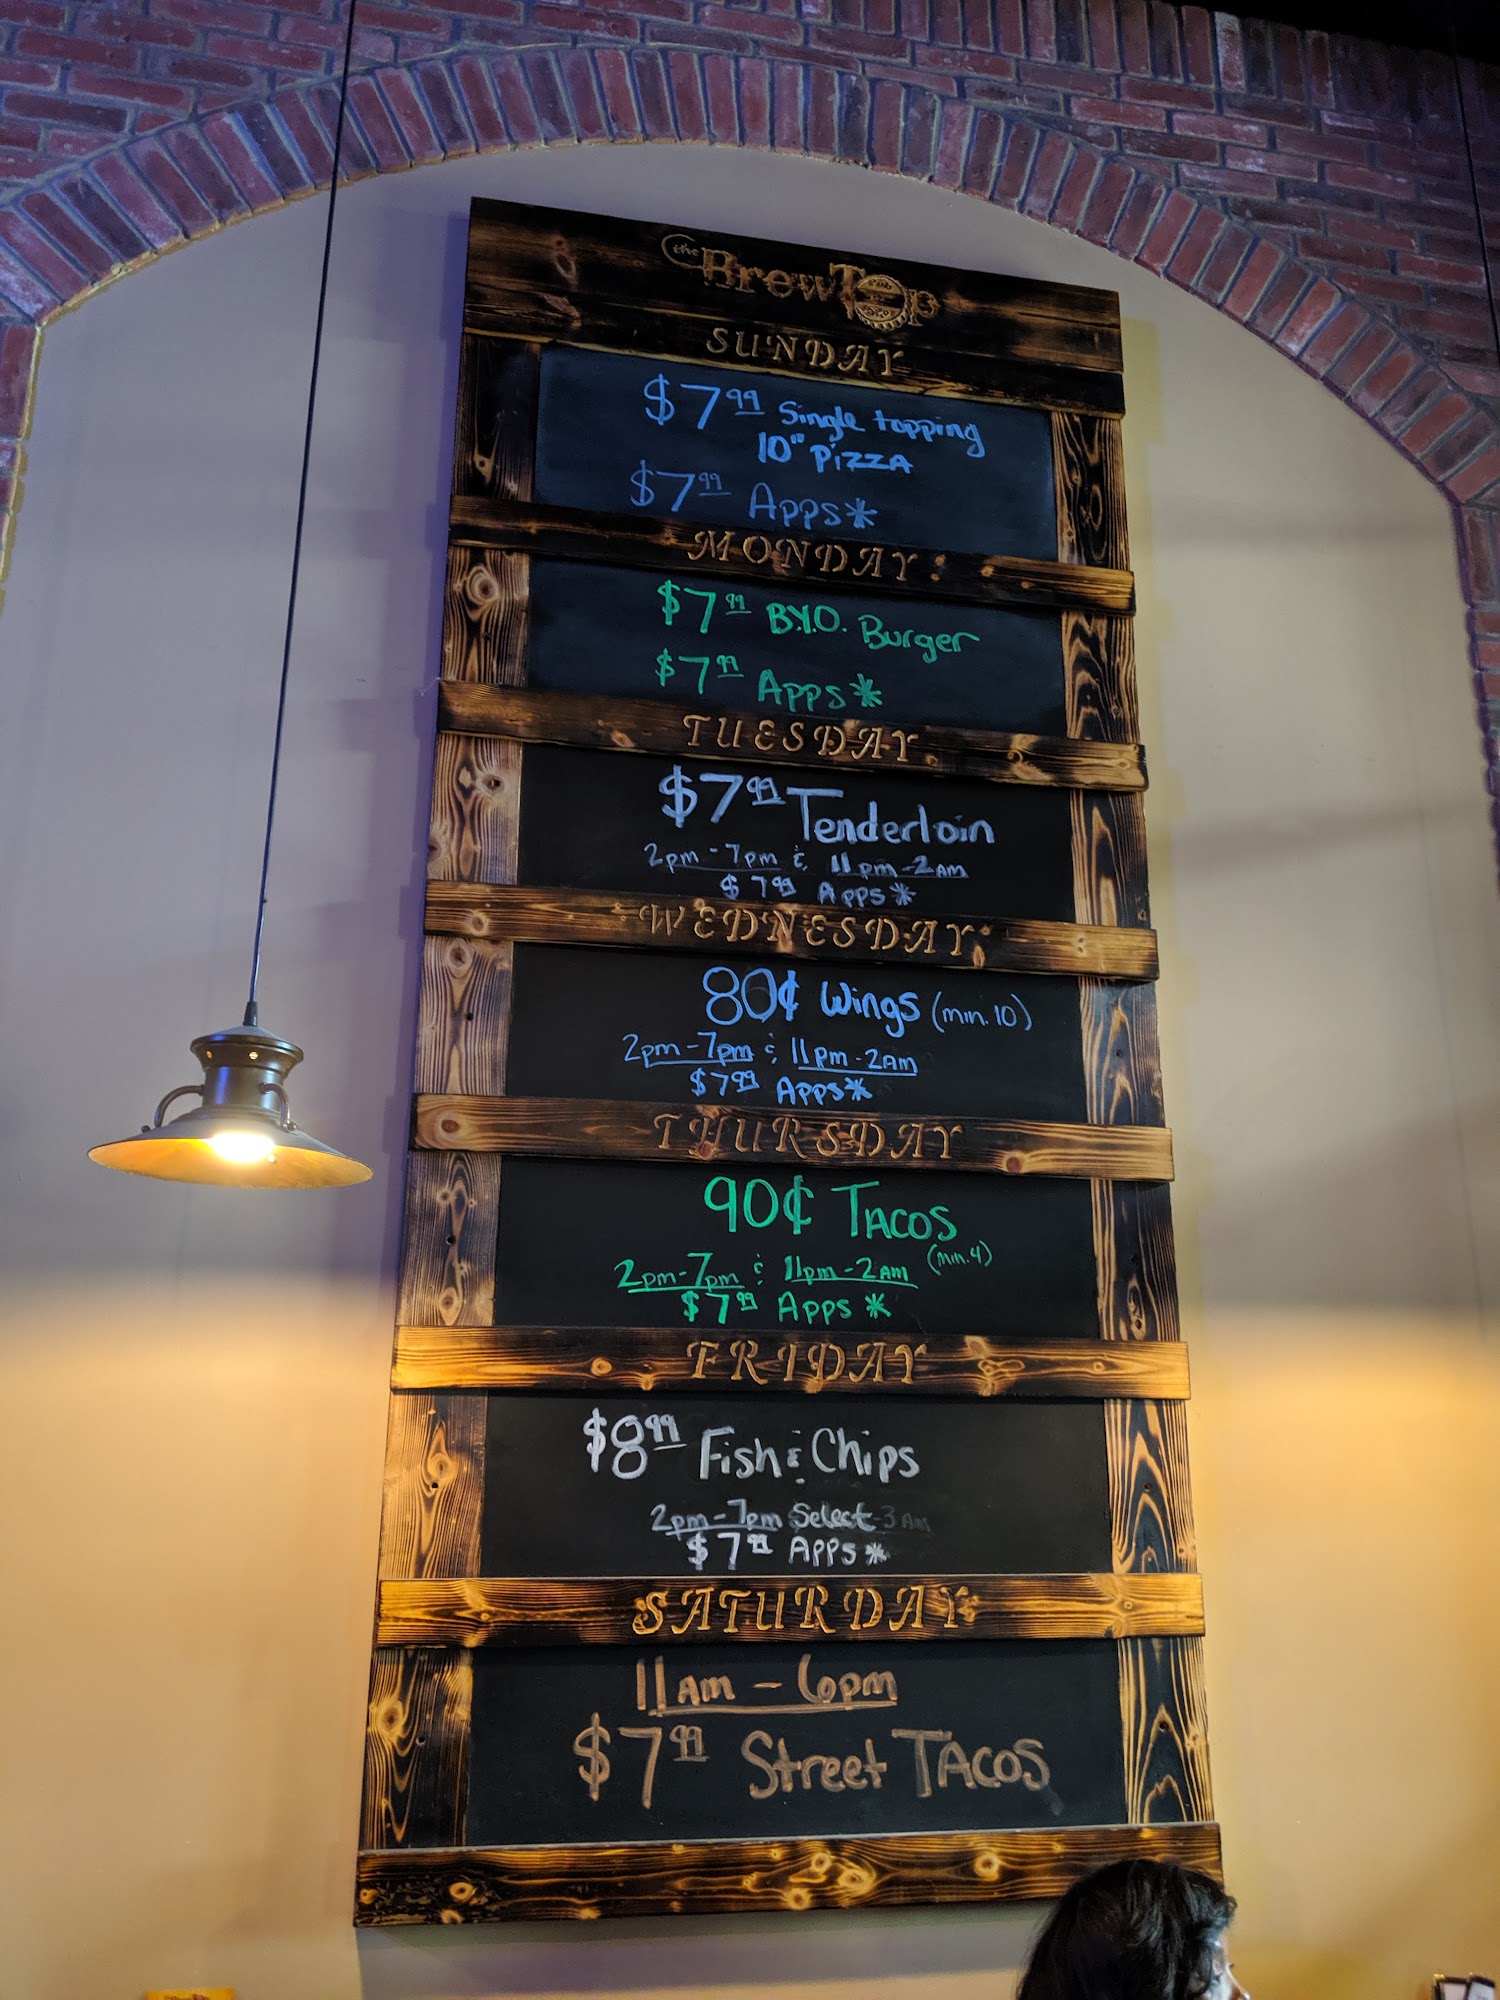 the BrewTop
SUNDAY
$7.99 Single topping
10" PIZZA
$7.99 Apps*
MONDAY
$7.99 B.Y.O. Burger
$7.99 Apps*
TUESDAY
$7.99 Tenderloin
2pm - 7pm & 11pm - 2AM
$7.99 Apps*
WEDNESDAY
80¢ Wings (min. 10)
2pm - 7pm & 11pm - 2AM
$7.99 Apps*
THURSDAY
90¢ TACOS
2pm - 7pm & 11pm - 2AM (min. 4)
$7.99 Apps*
FRIDAY
$8.99 Fish & Chips
2pm - 7pm Select
$7.99 Apps*
SATURDAY
11AM - 6pm
$7.99 Street TACOS